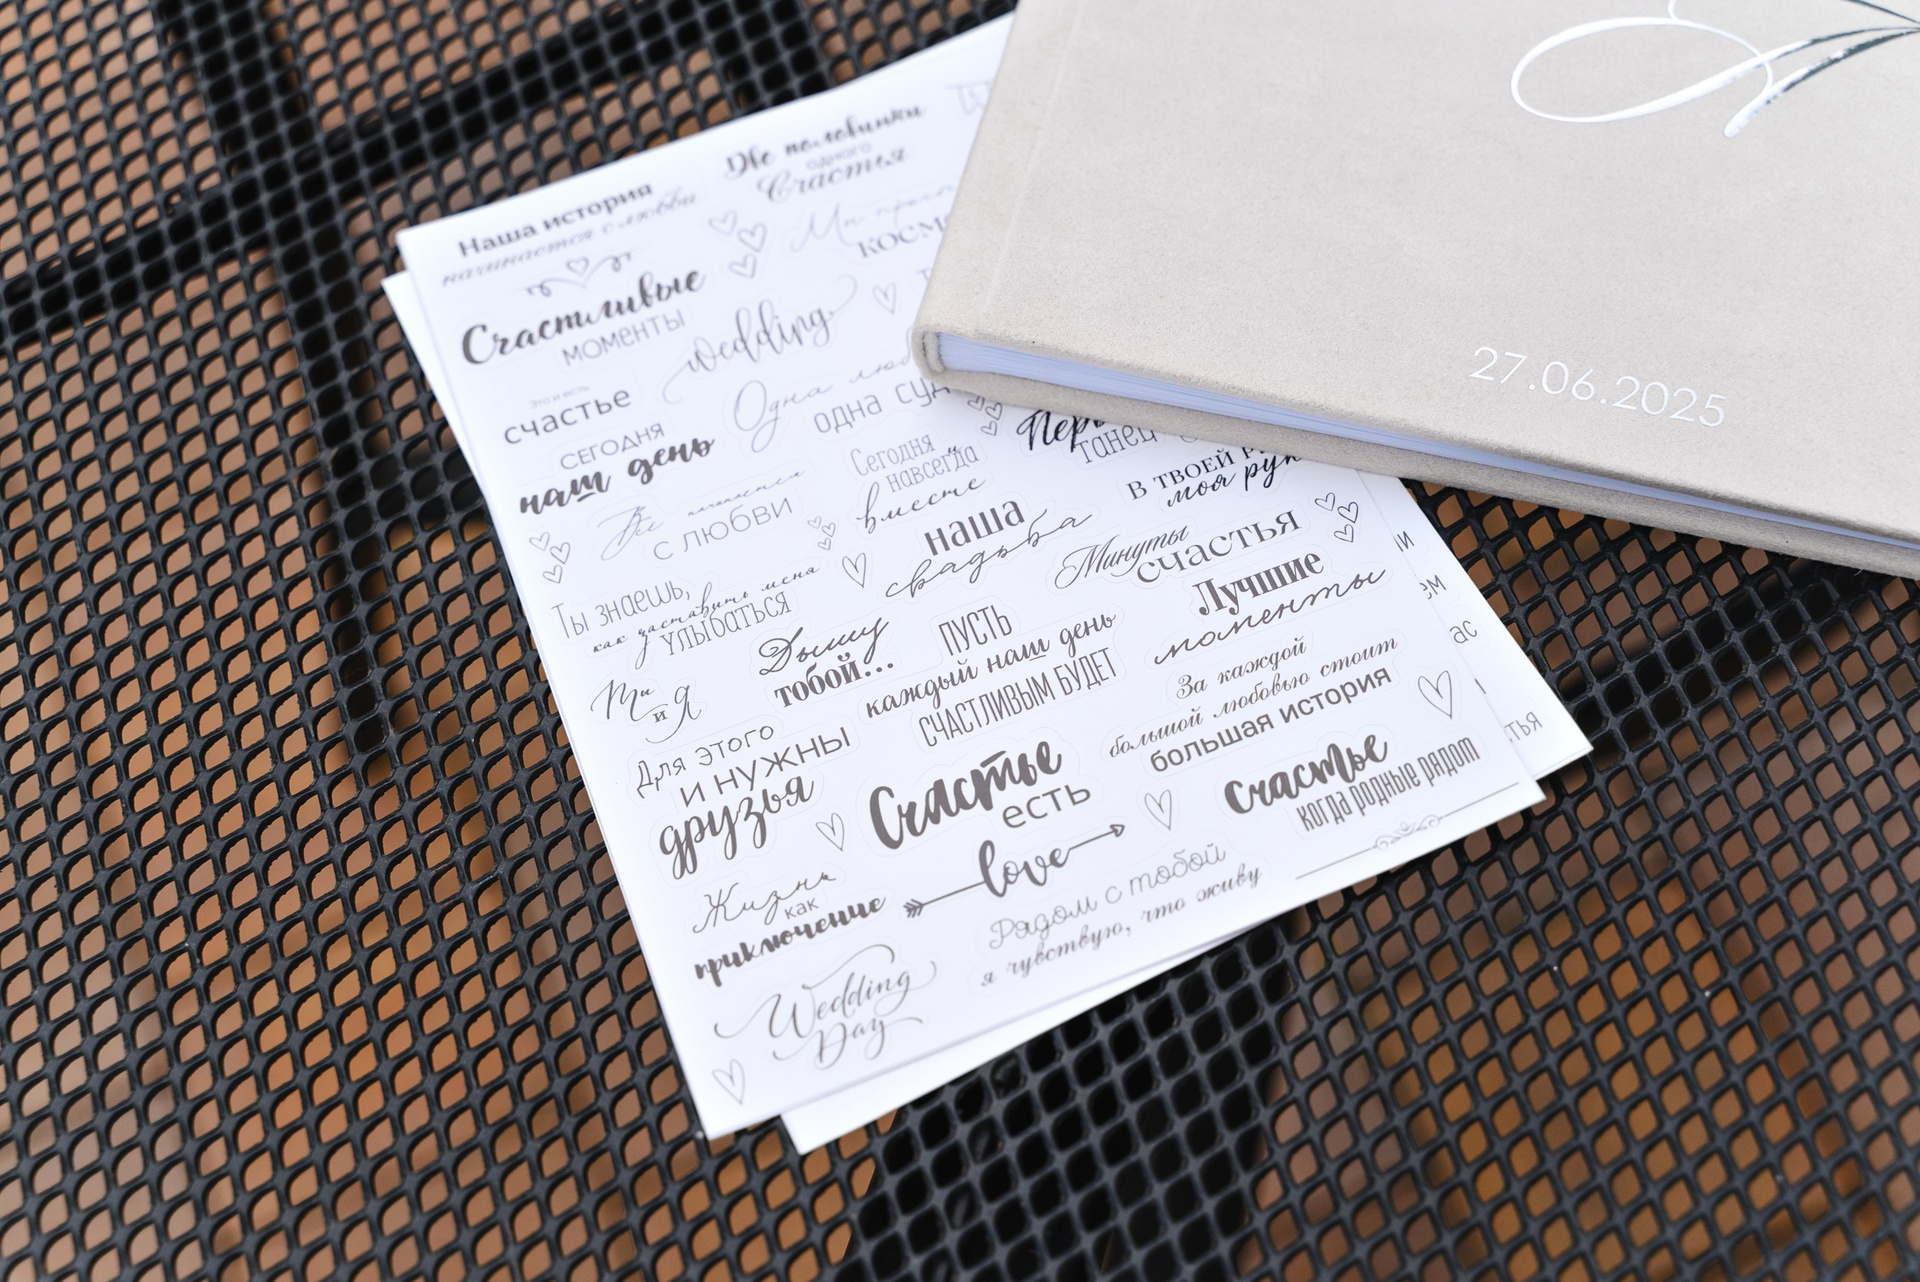 Две половинки
одного
Счастья
Наша история
начинается с любви
КОСМ
Счастливые
моменты
wedding
Это и есть
счастье
Одна люб
одна суд
СЕГОДНЯ
наш день
Сегодня
навсегда
вместе
Перв
танец
В ТВОЕЙ Р
моя рук
Всё начинается
С ЛЮБВИ
наша
свадьба
Минуты
счастья
Лучшие
моменты
Ты знаешь,
как заставить меня
улыбаться
Дышу
тобой...
ПУСТЬ
каждый наш день
СЧАСТЛИВЫМ БУДЕТ
За каждой
большой любовью стоит
большая история
Ты
и Я
Для этого
и нужны
друзья
Счастье
есть
Счастье
когда родные рядом
love
Жизнь
как
приключение
Рядом с тобой
я чувствую, что живу
Wedding
Day
и
ем
ас
тья
27.06.2025